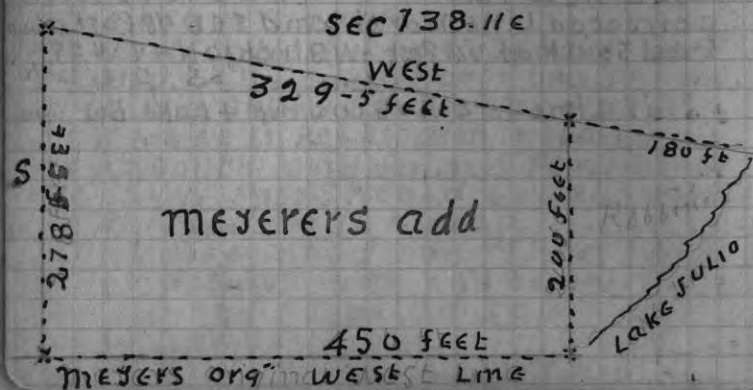 SEC 738.11E
WEST
329-5 fEEt
180 ft
S
meyerers add
200 fEEt
LAKE JULIO
450 fEEt
mEyERS org WEST LinE